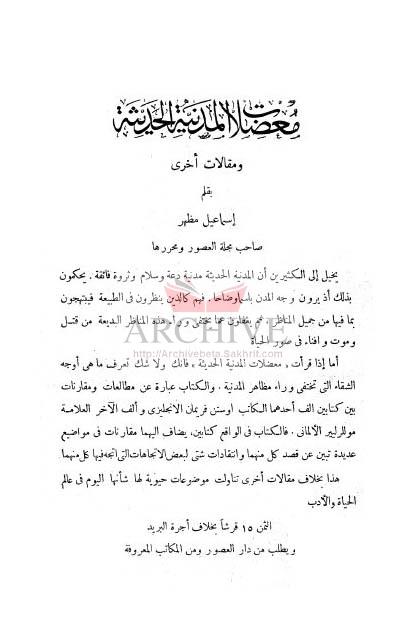 معضلات المدنية الحديثة
ومقالات أخرى
بقلم
إسماعيل مظهر
صاحب مجلة العصور ومحررها
يخيل إلى الكثيرين أن المدنية الحديثة مدنية دعة وسلام وثروة فائقة . يحكمون
بذلك إذ يرون وجه المدن باسما وضاحا . فهم كالذين ينظرون فى الطبيعة فيبتهجون
بما فيها من جميل المناظر . غير غافلون عما يختفى وراء هذه المناظر البديعة من قتل
وموت وافناء فى صور الحياة
ARCHIVE
http://Archivebeta.Sakhrit.com
أما إذا قرأت « معضلات المدنية الحديثة » فانك ولا شك تعرف ما هى أوجه
الشقاء التى تختفى وراء مظاهر المدنية . والكتاب عبارة عن مطالعات ومقارنات
بين كتابين الف أحدهما الكاتب اوستن فريمان الانجليزى وألف الآخر العلامة
موللرليير الألمانى . فالكتاب فى الواقع كتابين ، يضاف اليهما مقارنات فى مواضيع
عديدة تبين عن قصد كل منهما وانتقادات شتى لبعض الاتجاهات التى اتجه فيها كل منهما
هذا بخلاف مقالات أخرى تناولت موضوعات حيوية لها شأنها اليوم فى عالم
الحياة والأدب
الثمن ١٥ قرشاً بخلاف أجرة البريد
ويطلب من دار العصور ومن المكاتب المعروفة